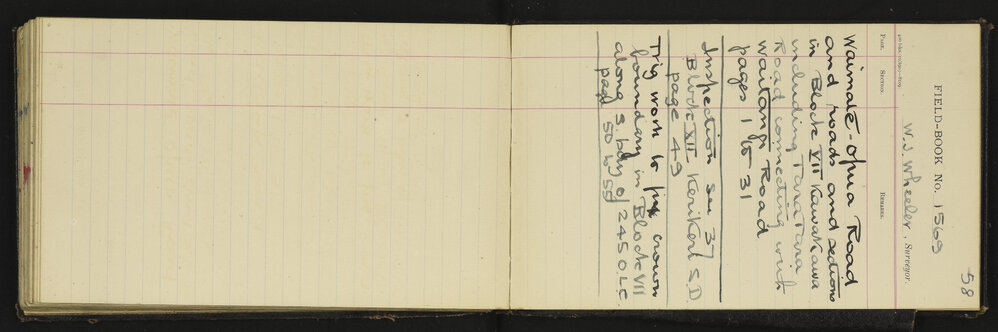 58
FIELD-BOOK No. 1569
W. J. Wheeler, Surveyor.
PAGE. SECTION. REMARKS.
Waimate-Opua Road
and roads and sections
in Block VII Kawakawa
including TaraTara
Road connecting with
Waitangi Road
pages 1 to 31
Inspection Sec 37
Block XII Kerikeri S.D.
page 49
Trig work to fix crown
boundary in Block VII
along S. bdy of 245 O.L.C.
page 50 to 55